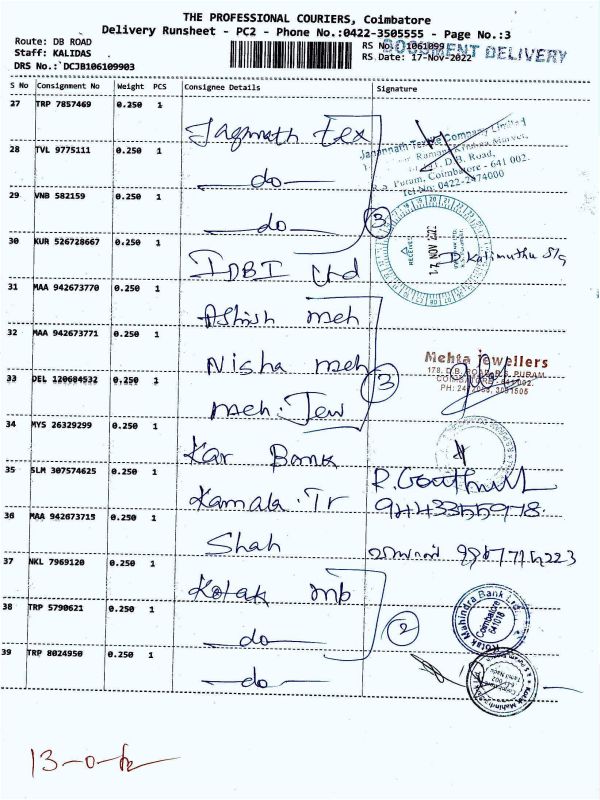 THE PROFESSIONAL COURIERS, Coimbatore
Delivery Runsheet - PC2 - Phone No.:0422-3505555 - Page No.:3
Route: DB ROAD
RS No.: 1061099
DOCUMENT DELIVERY
Staff: KALIDAS
RS Date: 17-Nov-2022
DRS No.: DCJB106109903
S No Consignment No Weight PCS Consignee Details Signature
27 TRP 7857469 0.250 1
Jagnnath tex
Jagannath Textile Company Limited
D.B. Road,
Puram, Coimbatore - 641 002.
Tel No: 0422-2474000
28 TVL 9775111 0.250 1
do
29 VNB 582159 0.250 1
do
3
30 KUR 526728667 0.250 1
IDBI Ltd
RECEIVED
17 NOV 2022
31 MAA 942673770 0.250 1
Ashish meh
32 MAA 942673771 0.250 1
Nisha meh
Mehta Jewellers
178, D.B. ROAD, R.S. PURAM,
COIMBATORE - 641 002.
33 DEL 120684532 0.250 1
meh. Jew
3
34 MYS 26329299 0.250 1
Kar Bank
35 SLM 307574625 0.250 1
Kamala. Tr
9443355978
36 MAA 942673715 0.250 1
Shah
37 NKL 7969120 0.250 1
Kotak mb
Kotak Mahindra Bank Ltd
Coimbatore
641018
38 TRP 5790621 0.250 1
do
2
39 TRP 8024950 0.250 1
do
13-0-